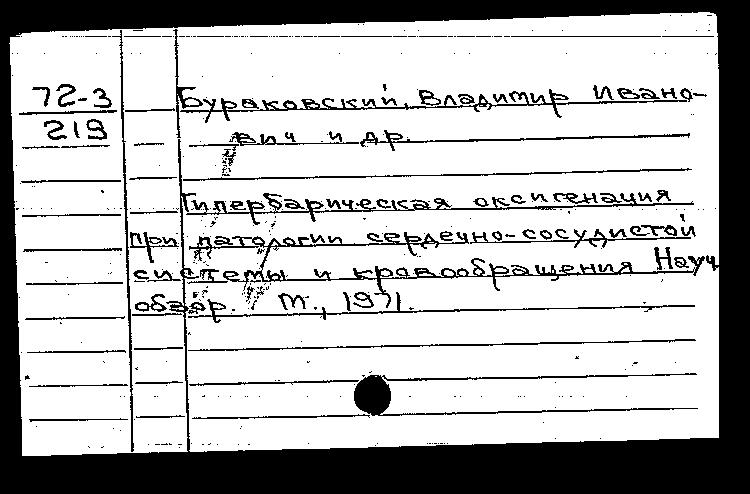 72-3
219
Бураковский, Владимир Ивано-
вич и др.
Гипербарическая оксигенация
при патологии сердечно-сосудистой
системы и кровообращения Науч.
обзор. М., 1971.